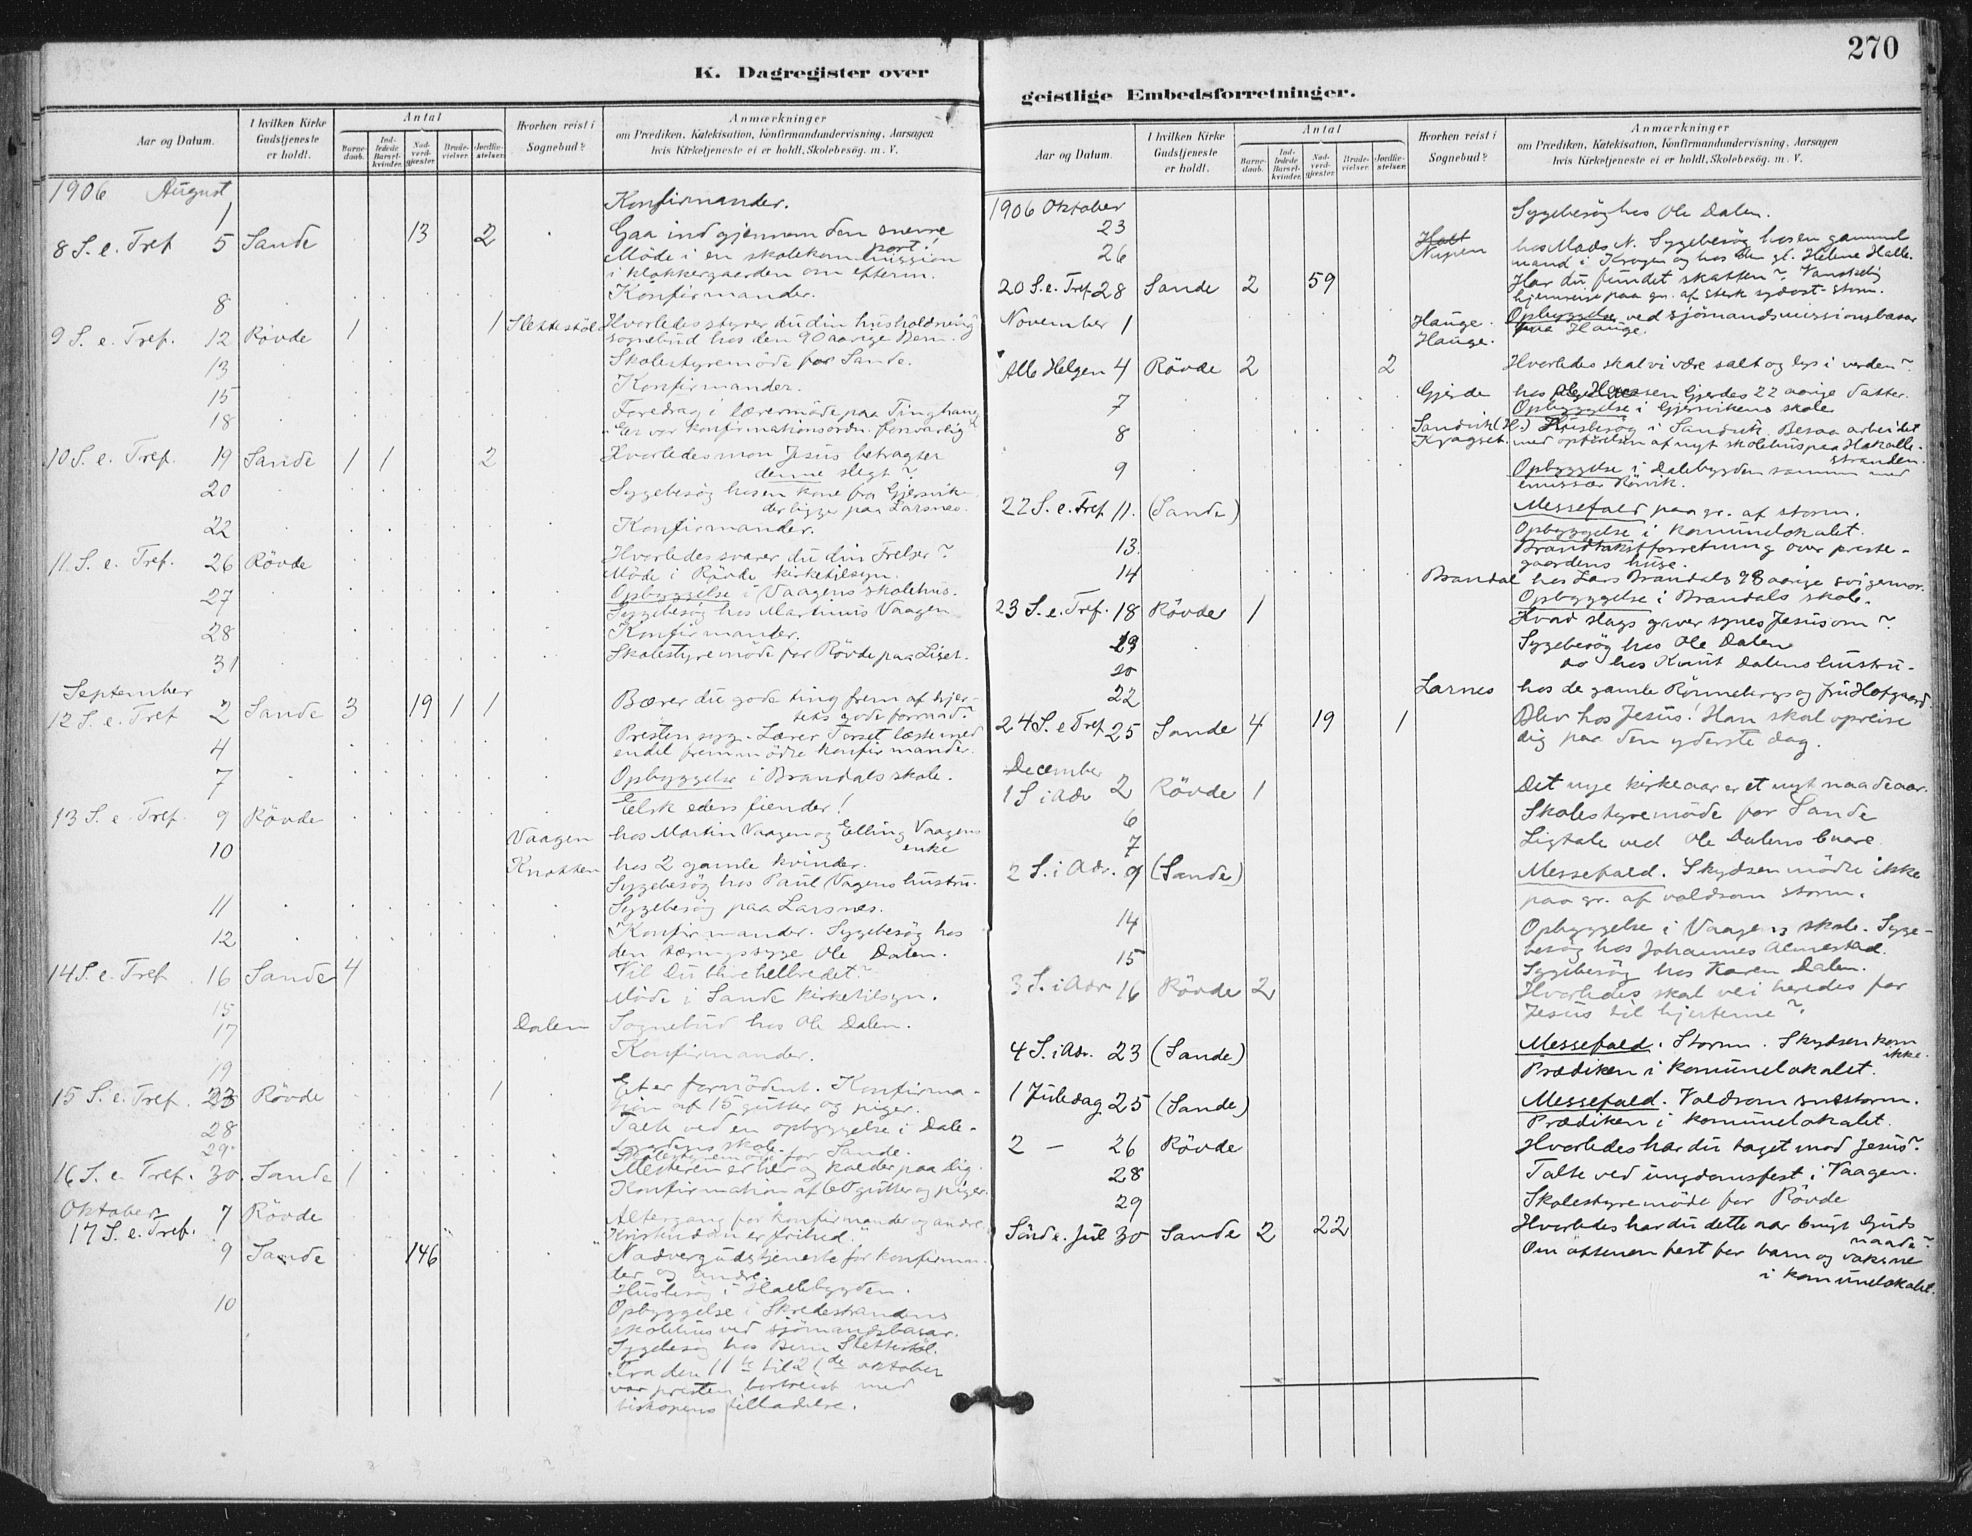 K. Dagregister over
Aar og Datum.
I hvilken Kirke Gudstjeneste er holdt.
Antal
Barnedaab.
Indledede Barselkvinder.
Nadverdgjæster
Brudevielser.
Jordfæstelser.
Hvorhen reist i Sognebud?
Anmærkninger
om Prædiken, Katekisation, Konfirmandundervisning, Aarsagen
hvis Kirketjeneste ei er holdt, Skolebesøg. m. V.
1906 August
1 Konfirmander.
8 S. e. Tref 5 Sande 13 2 Gaa ind gjennem den snevre port!
Møde i en skolekommission
i klokkergaarden om efterm.
8 Konfirmander.
9 S. e. Tref. 12 Røvde 1 1 Slettestøl Hvorledes styrer du din husholdning?
sognebud hos den 90 aarige Bern.
13 Skolestyremøde for Sande.
15 Konfirmander.
18 Foredrag i lærermøde paa Tinghaug
"Er vor konfirmationsordn. forsvarlig"
10 S. e. Tref. 19 Sande 1 1 2 Hvorledes mon Jesus betragter
denne slegt?
20 Sygebesøg hos en kone fra Gjersvik
der ligge paa Larsnes.
22 Konfirmander.
11 S. e. Tref. 26 Røvde Hvorledes svarer du din Frelser?
Møde i Røvde kirketilsyn.
27 Opbyggelse i Vaagens skolehus.
Sygebesøg hos Martinus Vaagen
28 Konfirmander.
31 Skolestyremøde for Røvde paa Liset.
September
12 S. e. Tref 2 Sande 3 19 1 1 Bærer du gode ting frem af hjer-
tets gode forraad?
4 Presten syg. Lærer Torset læste med
endel fremmødte konfirmander.
7 Opbyggelse i Brandals skole.
13 S. e. Tref. 9 Røvde Elsk eders fiender!
10 Vaagen hos Martin Vaagen og Elling Vaagens
enke
Knotten hos 2 gamle kvinder.
Sygebesøg hos Paul Vagens hustru.
11 Sygebesøg paa Larsnes.
12 Konfirmander. Sygebesøg hos
den tæringssyge Ole Dalen.
14 S. e. Tref. 16 Sande 4 Vil Du blive helbredet?
15 Møde i Sande kirketilsyn.
17 Dalen Sognebud hos Ole Dalen.
19 Konfirmander.
15 S. e. Tref. 23 Røvde 1 Et er fornødent. Konfirma-
tion af 15 gutter og piger.
28 Talte ved en opbyggelse i Dale-
bygdens skole.
29 Skolestyremøde for Sande.
16 S. e. Tref. 30. Sande 1 Mesteren er her og kalder paa dig.
Konfirmation af 60 gutter og piger.
Oktober 7 Røvde Altergang for konfirmander og andre
17 S. e. Tref. Kristendom er frihed.
9 Sande 146 Nadvergudstjeneste for konfirman-
der og andre.
Husbesøg i Hallebygden.
10 Opbyggelse i Skredestrandens
skolehus ved sjømandsbasar.
Sygebesøg hos Bern Slettestøl.
Fra den 11te til 21de oktober
var presten bortreist med
biskopens tilladelse.
270
geistlige Embedsforretninger.
Aar og Datum.
I hvilken Kirke Gudstjeneste er holdt.
Antal
Barnedaab.
Indledede Barselkvinder.
Nadverdgjæster
Brudevielser.
Jordfæstelser.
Hvorhen reist i Sognebud?
Anmærkninger
om Prædiken, Katekisation, Konfirmandundervisning, Aarsagen
hvis Kirketjeneste ei er holdt, Skolebesøg. m. V.
1906 Oktober
23 Sygebesøg hos Ole Dalen.
26 Nupen hos Mads N. Sygebesøg hos en gammel
mand i Krogen og hos den gl. Helene Halle.
20 S. e. Tref 28 Sande 2 59 Har du fundet skatten? Vanskelig
hjemreise paa gr. af sterk sydost-storm.
November 1 Hauge. Opbyggelse ved sjømandsmissionsbasar
Hauge. Hauge.
Alle Helgen 4 Røvde 2 2 Hvorledes skal vi være salt og lys i verden?
7 Gjerde hos Hansen Gjerdes 22 aarige datter.
Opbyggelse i Gjersvikens skole
8 Sandvik (H.) i Sandvik. Besaa arbeidet
Kragset. med opførelsen af nyt skolehus paa Hakalle-
stranden.
9 Opbyggelse i Dalebygden sammen med
emissær Rørvik.
22 S. e. Tref 11. (Sande) Messefald paa gr. af storm.
Opbyggelse i komunelokalet.
13. Brandtakstforretning over preste-
gaardens huse.
14 Brandal hos Lars Brandals 98 aarige svigermor.
Opbyggelse i Brandals skole.
23 S. e. Tref. 18 Røvde 1 Hvad slags gaver synes Jesus om?
19 Sygebesøg hos Ole Dalen
20 do hos Knut Dalens hustru.
22 Larnes hos de gamle Rønnebergs og fru Hofgaard.
24 S. e Tref 25 Sande 4 19 1 Bliv hos Jesus! Han skal opreise
dig paa den yderste dag.
December
1 S i Adv 2 Røvde 1 Det nye kirkeaar er et nyt naadeaar.
6 Skolestyremøde for Sande
7 Ligtale ved Ole Dalens baare.
2 S. i Adv. 9 (Sande) Messefald. Skydsen mødte ikke
paa gr. af voldsom storm.
14 Opbyggelse i Vaagens skole. Syge-
besøg hos Johannes Almestad.
15 Sygebesøg hos Karen Dalen.
3 S. i Adv 16 Røvde 2 Hvorledes skal vei beredes for
Jesus til hjerterne?
4 S. i Adv. 23 (Sande) Messefald. Storm. Skydsen kom
ikke.
Prædiken i komunelokalet.
1 Juledag 25 (Sande) Messefald. Voldsom snestorm.
Prædiken i komunelokalet.
2 — 26 Røvde Hvorledes har du taget mod Jesus?
28 Talte ved ungdomsfest i Vaagen.
29 Skolestyremøde for Røvde
Sønd e. Jul 30 Sande 2 22 Hvorledes har du dette aar brugt Guds
naade?
Om aftenen fest for barn og voksne
i komunelokalet.